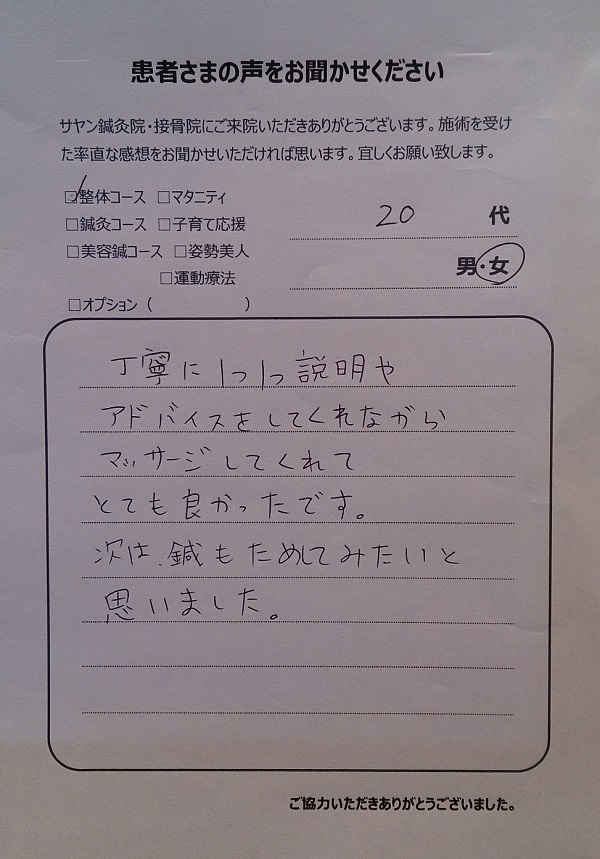 患者さまの声をお聞かせください
サヤン鍼灸院・接骨院にご来院いただきありがとうございます。施術を受け
た率直な感想をお聞かせいただければ思います。宜しくお願い致します。
☑整体コース □マタニティ
□鍼灸コース □子育て応援
20 代
□美容鍼コース □姿勢美人
男・女
□運動療法
□オプション（ ）
丁寧に1つ1つ説明や
アドバイスをしてくれながら
マッサージしてくれて
とても良かったです。
次は、鍼もためしてみたいと
思いました。
ご協力いただきありがとうございました。